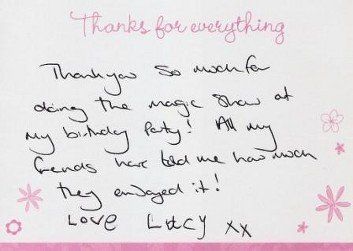 Thanks for everything
Thank you so much for
doing the magic show at
my birthday party! All my
friends have told me how much
they enjoyed it!
Love Lucy xx